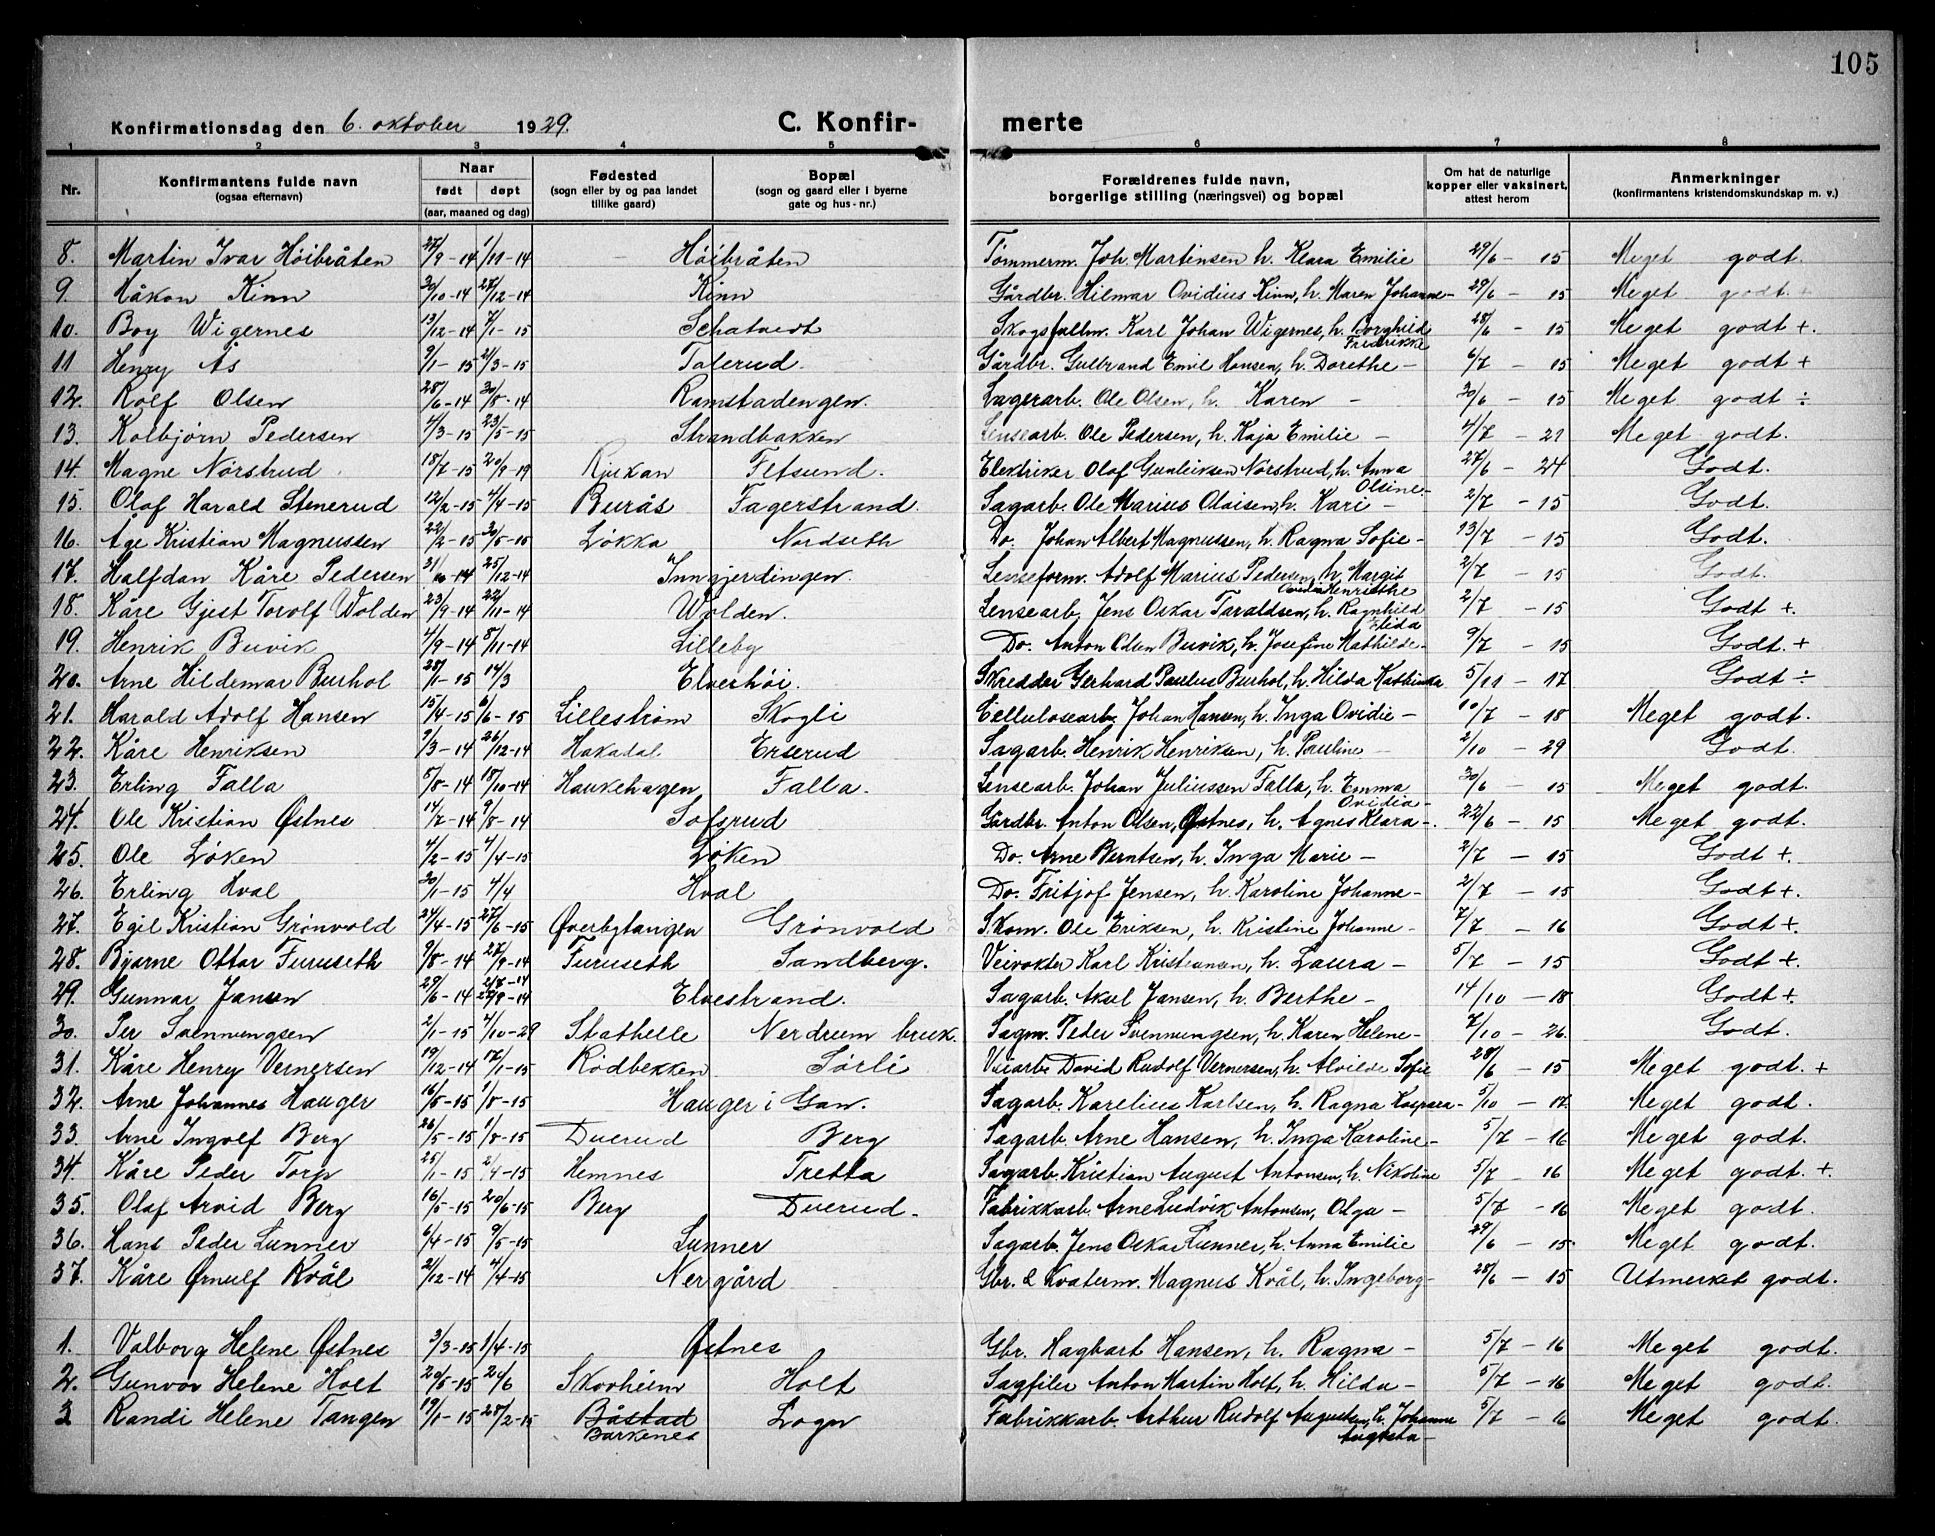 105
Konfirmationsdag den 6. oktober 1929. C. Konfir- merte
1 2 3 4 5 6 7 8
Nr. Konfirmantens fulde navn (ogsaa efternavn) Naar født døpt (aar, maaned og dag) Fødested (sogn eller by og paa landet tillike gaard) Bopæl (sogn og gaard eller i byerne gate og hus-nr.) Forældrenes fulde navn, borgerlige stilling (næringsvei) og bopæl Om hat de naturlige kopper eller vaksinert, attest herom Anmerkninger (konfirmantens kristendomskundskap m. v.)
8. Martin Ivar Høibråten 27/9-14 1/11-14 Høibråten Tømmerm. Joh. Martinsen h. Klara Emilie 29/6 - 15 Meget godt.
9. Håkon Kinn 30/10-14 27/12-14 Kinn Gårdbr. Hilmar Ovidius Kinn, h. Maren Johanne- 29/6 - 15 Meget godt. +
10. Boy Wigernes 13/12-14 7/1-15 Schatvedt Skogsfullm. Karl Johan Wigernes, h. Borghild Fredrikke 28/6 - 15 Meget godt +.
11 Henry Ås 9/1-15 2/3-15 Tølerud. Gårdbr. Gulbrand Emil Hansen, h. Dorethe - 6/7 - 15 Meget godt +
12. Rolf Olsen 28/6-14 30/8-14 Ramstadengen. Lagerarb. Ole Olsen, h. Karen - 30/6 - 15 Meget godt ÷
13. Kolbjørn Pedersen 4/3-15 23/5-15 Strandbakken Lensearb. Ole Pedersen, h. Kaja Emilie - 4/7 - 21 Meget godt.
14. Magne Nørstrud 18/7-15 20/9-19 Rjukan Fetsund. Elektriker Olaf Gunleiksen Nørstrud, h. Anna Olsine- 27/6 - 24 Godt.
15. Olaf Harald Stenerud 12/2-15 4/4-15 Burås Fagerstrand. Sagarb. Ole Marius Olaisen, h. Kari - 2/7 - 15 Godt.
16. Åge Kristian Magnussen 22/2-15 30/5-15 Løkka Nordseth Do. Johan Albert Magnussen, h. Ragna Sofie - 13/7 - 15 Godt.
17. Halfdan Kåre Pedersen 31/10-14 25/12-14 Inngjerdingen. Lenseform. Adolf Marius Pedersen, h. Margit Ovidia Henriethe 2/7 - 15 Godt.
18. Kåre Gjest Torolf Wolden 23/9-14 22/11-14 Wolden. Lensearb. Jens Oskar Taraldsen, h. Ragnhild Elida 2/7 - 15 Godt +.
19. Henrik Buvik 4/9-14 8/11-14 Lilleby Do. Anton Olsen Buvik, h. Josefine Mathilde- 9/7 - 15 Godt. +
20. Arne Hildemar Burhol 28/1-15 14/3 Elverhøi. Skredder Gerhard Paulus Burhol, h. Hilda Kathinka 5/11 - 17 Godt ÷
21. Harald Adolf Hansen 15/4-15 6/6-15 Lillestrøm Skogli Cellulosearb. Johan Hansen, h. Inga Ovidie - 10/7 - 18 Meget godt.
22. Kåre Henriksen 9/3-14 26/12-14 Hakadal Erserud Sagarb. Henrik Henriksen, h. Pauline - 2/10 - 29 Godt.
23. Erling Falla 5/8-14 18/10-14 Haukehagen Falla. Lensearb. Johan Juliussen Falla, h. Emma Ovidia- 30/6 - 15 Meget godt.
24. Ole Kristian Østnes 14/7-14 9/8-14 Sofsrud Gårdbr. Anton Olsen, Østnes, h. Agnes Klara -. 22/6 - 15 Meget godt.
25. Ole Løken 4/2-15 4/4-15 Løken Do. Arne Berntsen, h. Inga Marie - 2/7 - 15 Godt +.
26. Erling Hval 20/1-15 4/4 Hval Do. Fritjof Jensen, h. Karoline Johanne - 2/7 - 15 Godt +.
27. Egil Kristian Grønvold 24/4-15 27/6-15 Øverbytangen Grønvold Skom. Ole Eriksen, h. Kristine Johanne - 7/7 - 16 Godt +.
28. Bjarne Ottar Furuseth 9/8-14 27/9-14 Furuseth Sandberg. Veivokter Karl Kristiansen, h. Laura - 5/7 - 15 Godt +.
29. Gunnar Jansen 29/6-14 27/9-14 Elvestrand. Sagarb. Aksel Jansen, h. Berthe - 14/10 - 18 Godt +.
30. Per Svennungsen 2/1-15 4/10-29 Stathelle Nerdrum bruk. Sagm. Peder Svennungsen, h. Karen Helene- 7/10 - 26. Godt.
31. Kåre Henry Vernersen 19/12-14 17/1-15 Rødbekken Sørli Veiarb. David Rudolf Vernersen, h. Alvilde Sofie 28/6 - 15 Meget godt. +
32. Arne Johannes Hauger 16/5-15 1/8-15 Hauger i Gan. Sagarb. Karelius Karlsen, h. Ragna Kaspara- 5/10 - 17. Meget godt.
33. Arne Ingolf Berg 26/5-15 1/8-15 Duerud Berg Sagarb. Arne Hansen, h. Inga Karoline- 5/7 - 16 Meget godt.
34. Kåre Peder Torp 25/1-15 2/4-15 Hemnes Tretta Sagarb. Kristian August Antonsen, h. Nikoline 5/7 - 16 Meget godt. +.
35. Olaf Arvid Berg 16/5-15 20/6-15 Berg Duerud. Fabrikkarb. Arne Ludvik Antonsen, Olga - 5/7 - 16 Meget godt.
36. Hans Peder Lunner 6/4-15 9/5-15 Lunner Sagarb. Jens Oskar Lunner, h. Anna Emilie 29/6 - 15. Meget godt.
37. Kåre Ørnulf Kvål 21/12-14 4/4-15 Nergård Gbr. & Kvaterm. Magnus Kvål, h. Ingeborg- 28/6 - 15 Utmerket godt.
1. Valborg Helene Østnes 3/3-15 1/4-15 Østnes Gbr. Hagbart Hansen, h. Ragna - 5/7 - 16 Meget godt.
2. Gunvor Helene Holt 20/5-15 20/6 Skovheim Holt Sagfiler Anton Martin Holt, h. Hilda - 5/7 - 16 Meget godt.
3 Randi Helene Tangen 19/1-15 28/2-15 Båstad Barkenes Logn Fabrikkarb. Arthur Rudolf Augustsen, h. Johanne Augusta - 5/7 - 16 Meget godt.